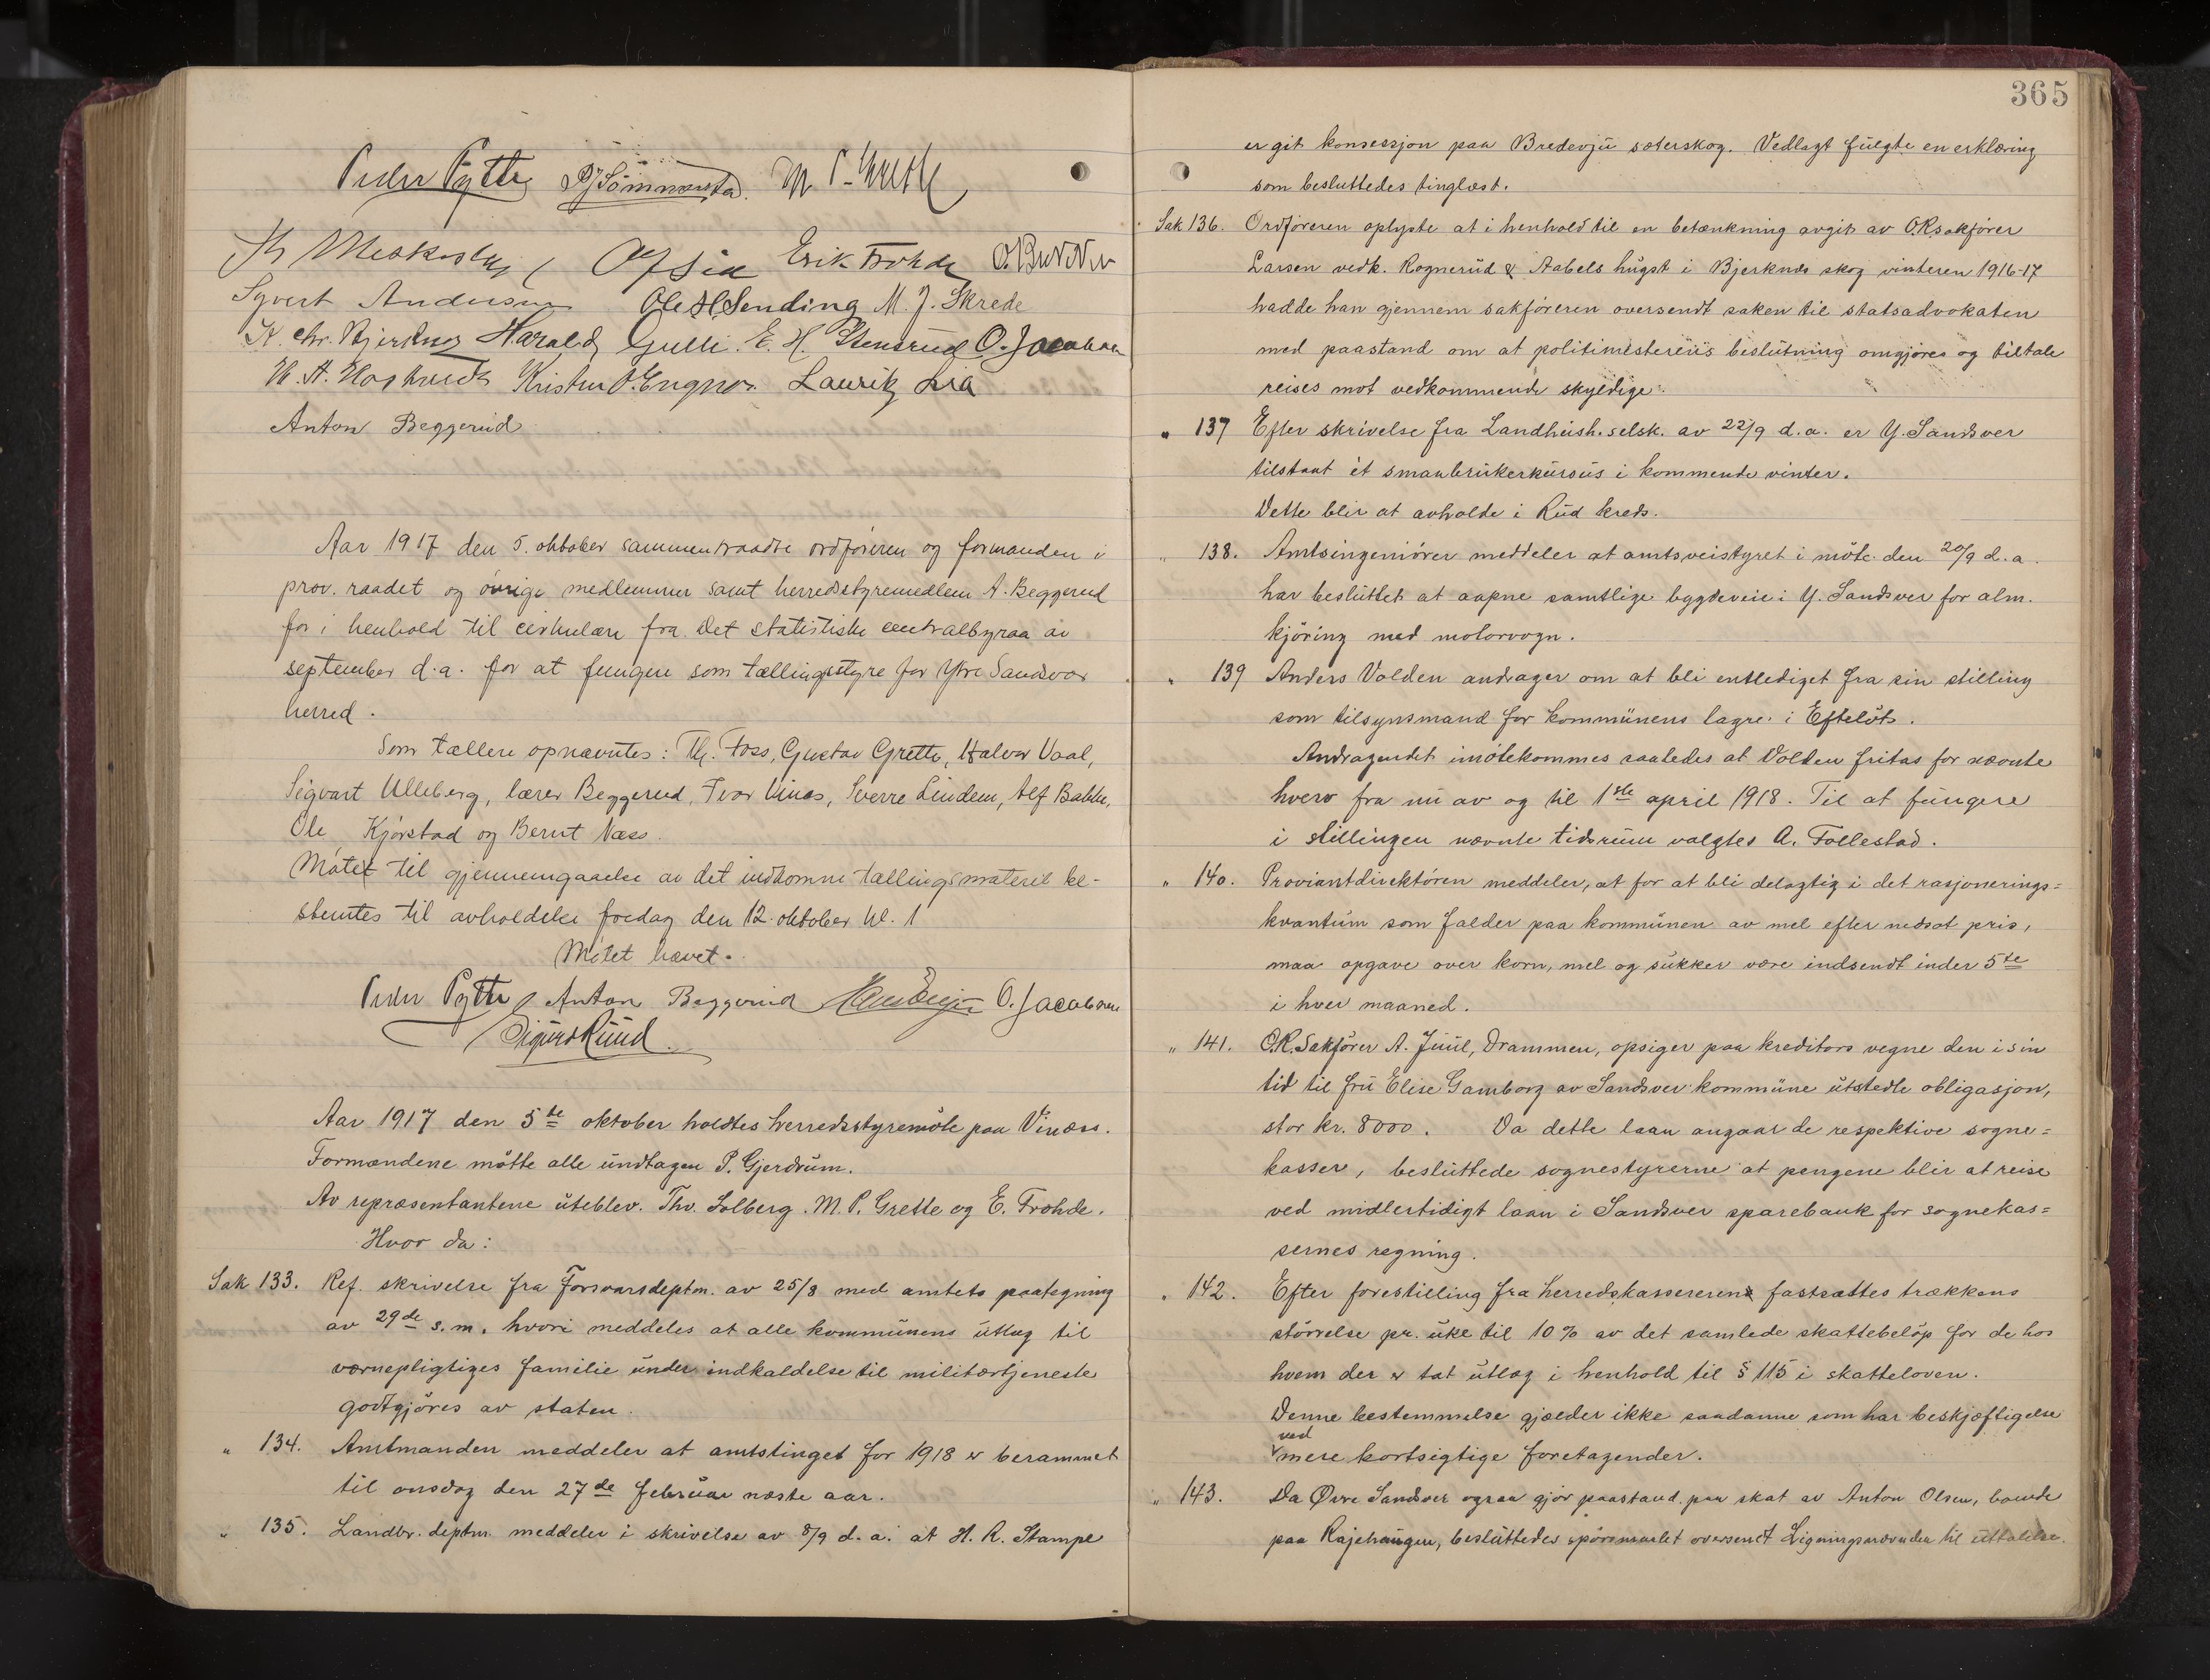 Peder Pytte
M. P. Grette
Erik Frohde
Syvert Andersen Ole H Sending M. J. Skrede
K. Chr. Bjerknes Harald Gulli. E. H. Stensrud O. Jacobsen
Lauritz Lia
Anton Beggerud
Aar 1917 den 5. oktober sammentraadte ordföreren og formanden i
prov. raadet og övrige medlemmer samt herredsstyremedlem A. Beggerud
for i henhold til cirkulære fra det statistiske centralbyraa av
september d.a. for at fungere som tællingsstyre for Ytre Sandsvær
herred.
Som tællere opnævntes: Th. Foss, Gustav Grette, Halvor Vaal,
Sigvart Ulleberg, lærer Beggerud, Ivar Vinæs, Sverre Lindem, Alf Bakke,
Ole Kjörstad og Bernt Næss.
Mötet til gjennemgaaelse av det indkomne tællingsmateriel be-
stemtes til avholdelse fredag den 12. oktober kl. 1
Mötet hævet.
Peder Pytte Anton Beggerud O. Jacobsen
Sigurd Ruud.
Aar 1917 den 5te oktober holdtes herredsstyremöte paa Vinæss.
Formændene mötte alle undtagen P. Gjerdrum.
Av repræsentantene uteblev. Thv. Solberg. M. P. Grette og E. Frohde.
Hvor da:
Sak 133. Ref. skrivelse fra Forsvarsdeptm. av 25/8 med amtets paategning
av 29de s.m. hvori meddeles at alle kommunens utlæg til
værnepligtiges familie under indkaldelse til militærtjeneste
godtgjöres av staten.
" 134. Amtmanden meddeler at amtstinget for 1918 er berammet
til onsdag den 27de februar næste aar.
" 135. Landbr. deptm. meddeler i skrivelse av 8/9 d.a. at H. R. Stampe
365
er git konsessjon paa Bredevju sæterskog. Vedlagt fulgte en erklæring
som besluttedes tinglæst.
Sak 136. Ordföreren oplyste at i henhold til en betænkning avgit av O.R.sakförer
Larsen vedk. Rognerud & Aabels hugst i Bjerknes skog vinteren 1916-17
hadde han gjennem sakföreren oversendt saken til statsadvokaten
med paastand om at politimesterens beslutning omgjöres og tiltale
reises mot vedkommende skyldige.
" 137 Efter skrivelse fra Landhush. selsk. av 22/9 d.a. er Y. Sandsver
tilstaat ét smaabrukerkursus i kommende vinter.
Dette blir at avholde i Rud kreds.
" 138. Amtsingeniören meddeler at amtsveistyret i möte den 20/9 d.a.
har besluttet at aapne samtlige bygdeveie i Y. Sandsver for alm.
kjöring med motorvogn.
" 139 Anders Volden andrager om at bli entlediget fra sin stilling
som tilsynsmand for kommunens lagre i Eftelöt.
Andragendet imötekommes saaledes at Volden fritas for nævnte
hverv fra nu av og til 1ste april 1918. Til at fungere
i stillingen nævnte tidsrum valgtes A. Follestad.
" 140. Proviantdirektören meddeler, at for at bli delagtig i det rasjonerings=
kvantum som falder paa kommunen av mel efter nedsat pris,
maa opgave over korn, mel og sukker være indsendt inden 5te
i hver maaned.
" 141. O.R. Sakförer A. Juul, Drammen, opsiger paa kreditors vegne den i sin
tid til fru Elise Gamborg av Sandsver kommune utstedte obligasjon,
stor kr. 8000. Da dette laan angaar de respektive sogne=
kasser, besluttede sognestyrerne at pengene blir at reise
ved midlertidigt laan i Sandsver sparebank for sognekas=
sernes regning.
" 142. Efter forestilling fra herredskassereren fastsættes trækkens
störrelse pr. uke til 10% av det samlede skattebelöp for de hos
hvem der er tat utlæg i henhold til § 115 i skatteloven.
Denne bestemmelse gjælder ikke saadanne som har beskjæftigelse
ved mere kortsigtige foretagender.
" 143. Da Øvre Sandsver ogsaa gjör paastand paa skat av Anton Olsen, boende
paa Rajehaugen, besluttedes spörsmaalet oversendt Ligningsnævnden til uttalelse.